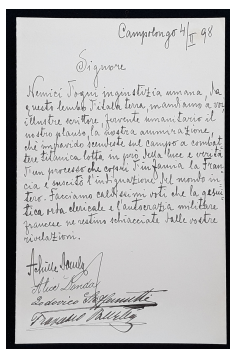 Campolongo 4/II 98
Signore
Nemici d'ogni ingiustizia umana, da
questo lembo d'italia terra, mandiamo a voi
illustre scrittore, fervente umanitario il
nostro plauso, la nostra ammirazione,
chè impavido scendeste sul campo a combat
tere titanica lotta in prò della luce e verità
d'un processo che coprì d'infamia la Fran
cia e suscitò l'indignazione del mondo in
tero. Facciamo caldissimi voti che la gesui
tica orda clericale e l'autocrazia militare
francese ne restino schiacciate dalle vostre
rivelazioni.
Achille
Alice
Lodovico